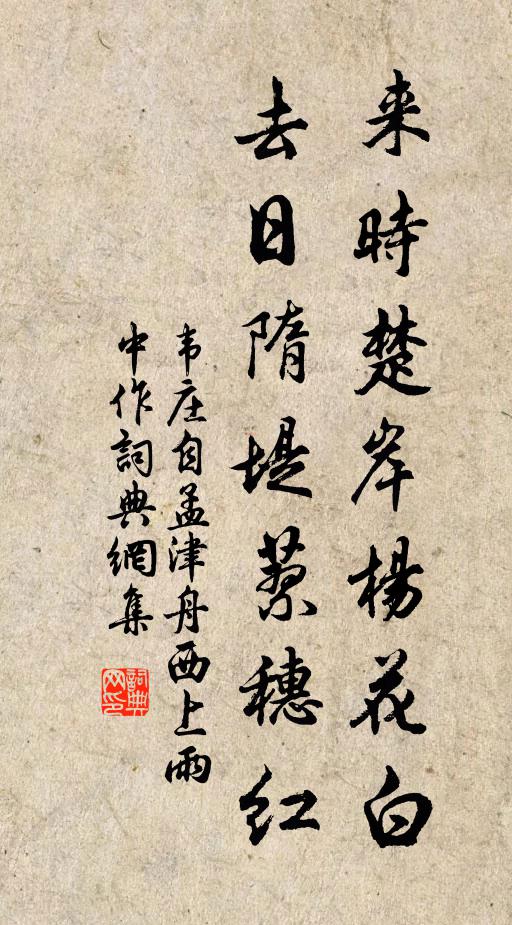 来時楚岸楊花白
去日隋堤蓼穗红
韦庄自孟津舟西上雨
中作詞典網集
詞典网印